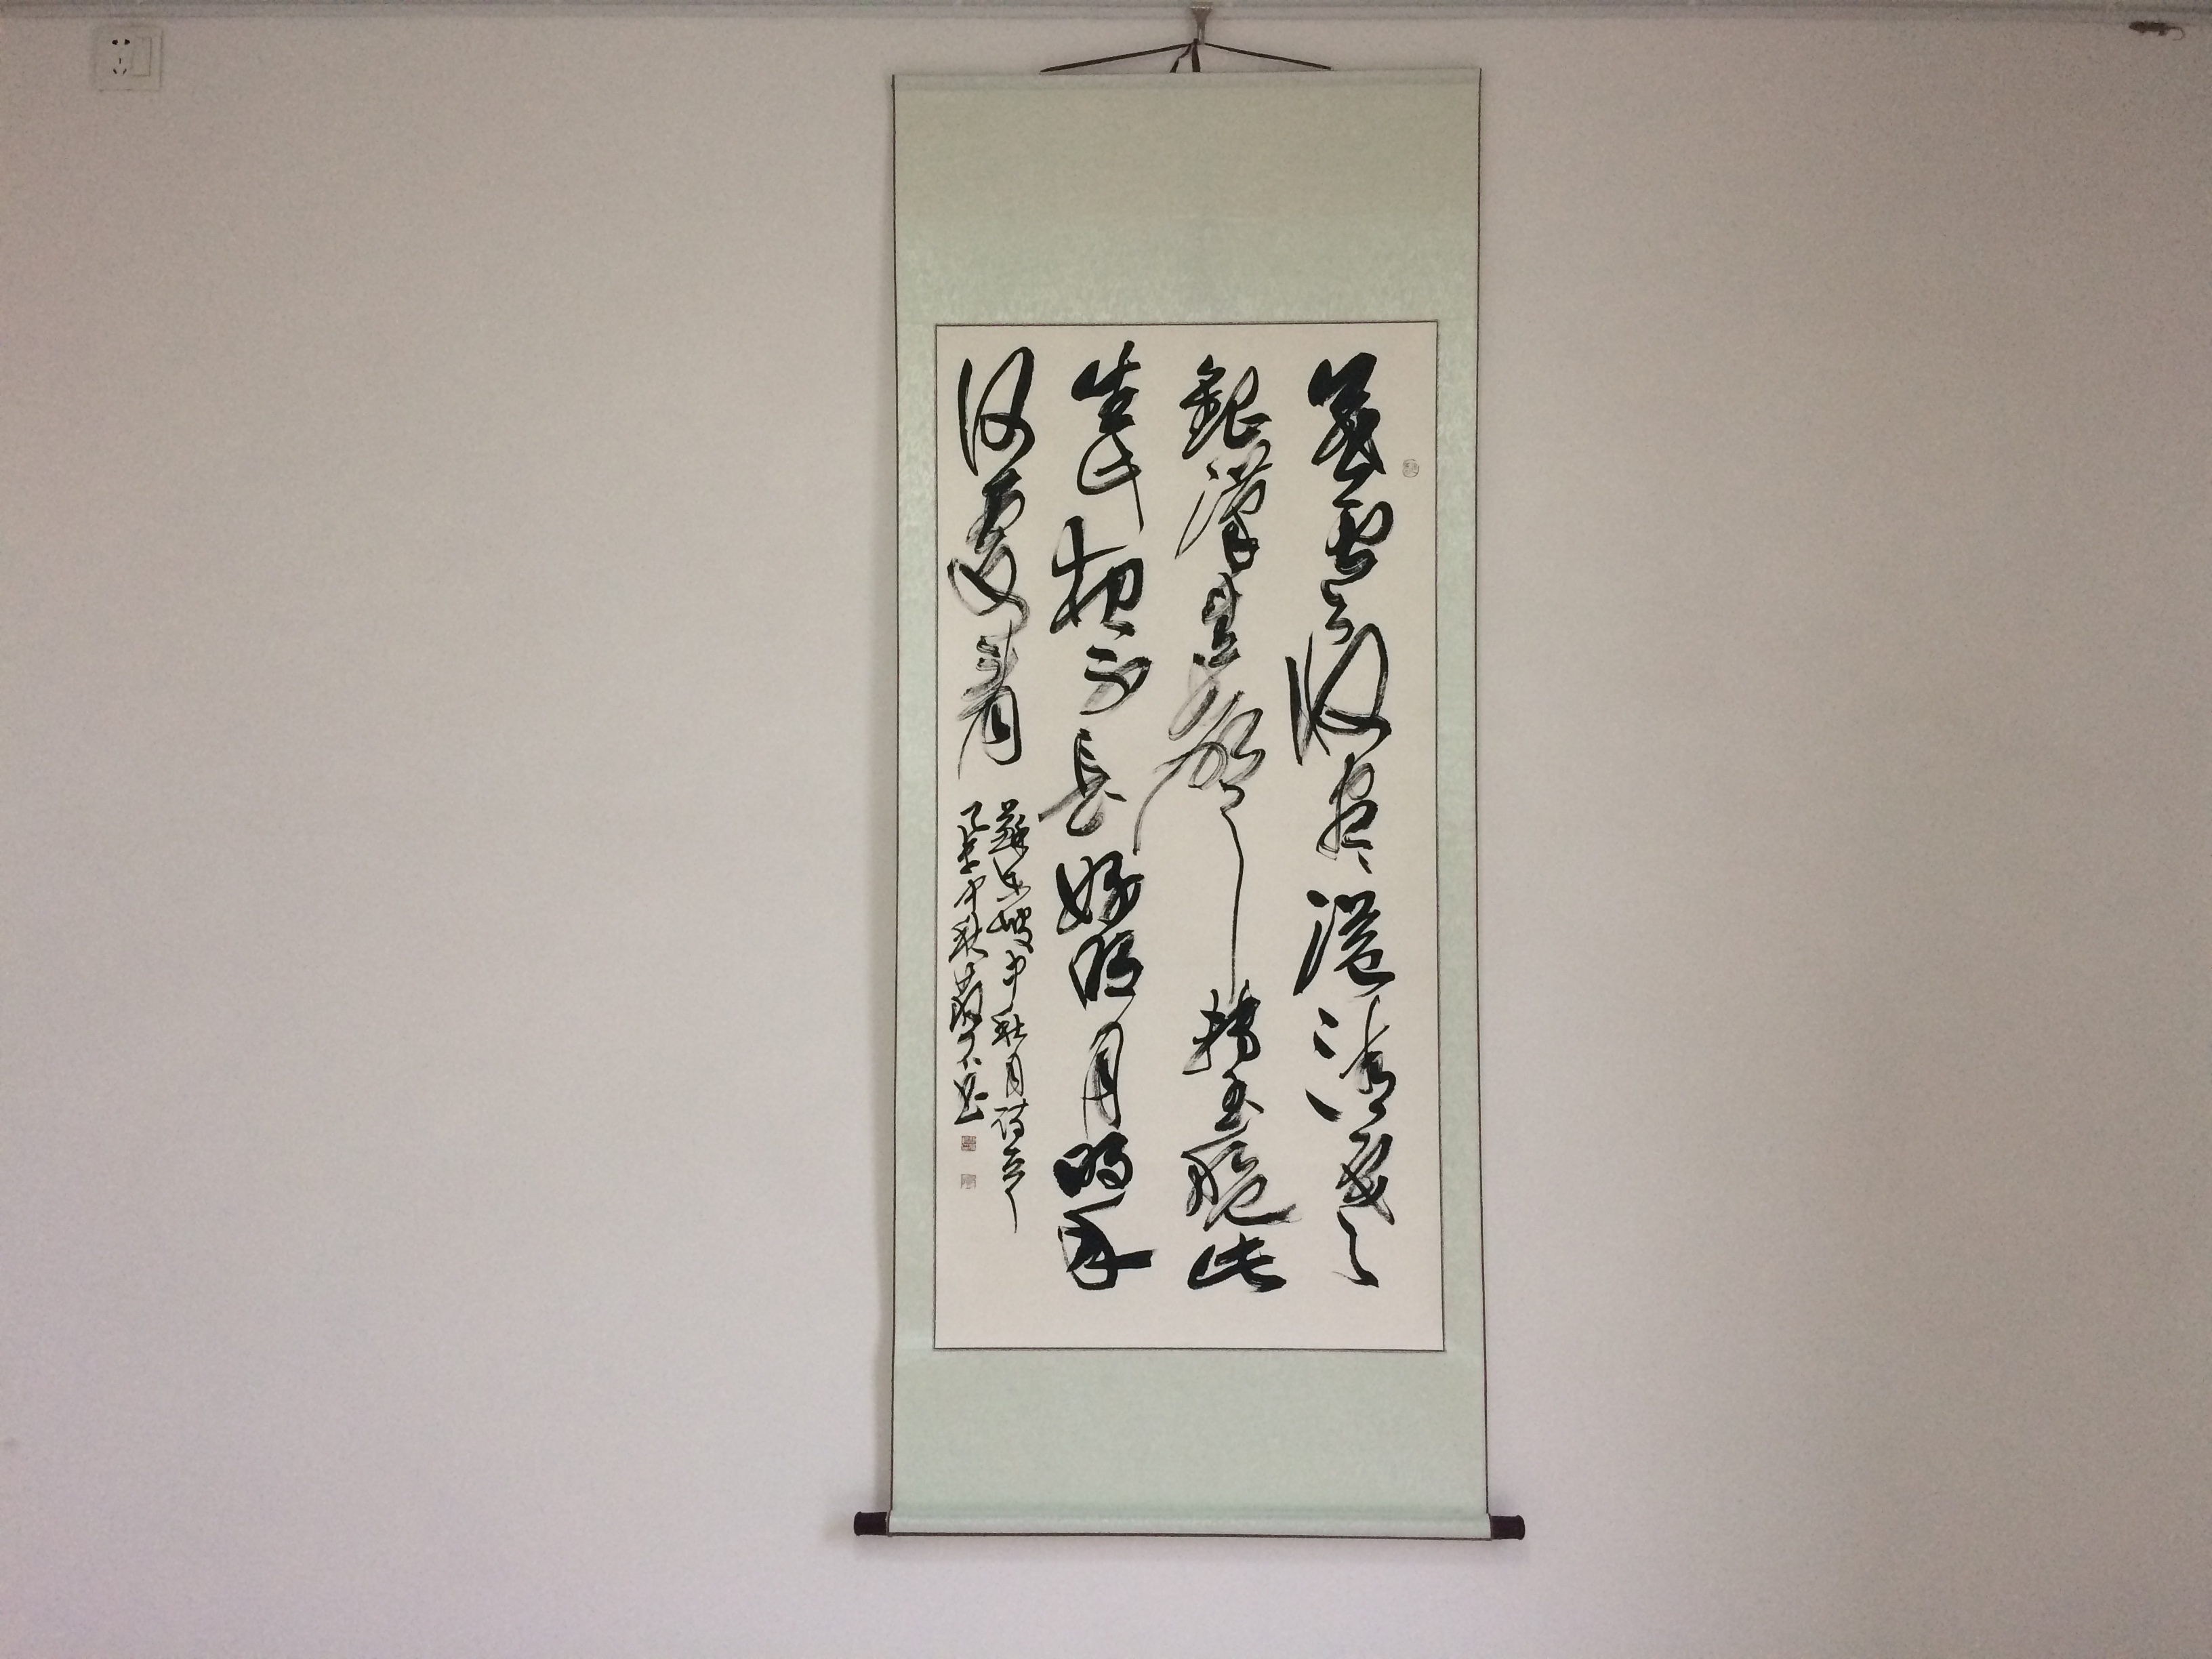 暮雲收盡溢清寒
銀漢無聲轉玉盤此
生此夜不長好明月明年
何處看
蘇東坡中秋月詩一首
中秋